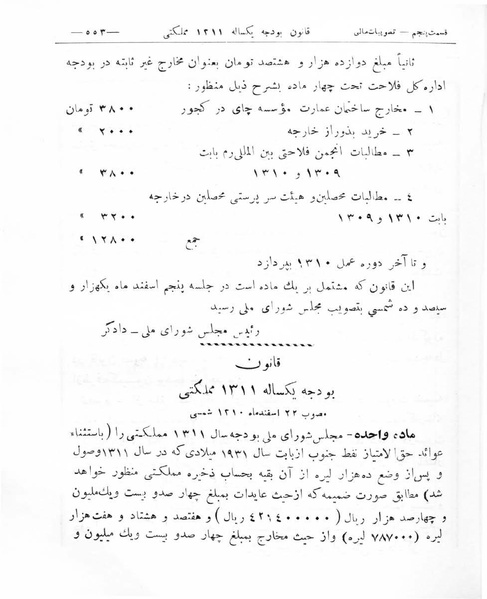 قسمت پنجم – تصویبات مالی
قانون بودجه یکساله ۱۳۱۱ مملکتی
—۵۵۳—
ثانیاً مبلغ دوازده هزار و هشتصد تومان بعنوان مخارج غیر ثابته در بودجه
اداره کل فلاحت تحت چهار ماده بشرح ذیل منظور :
۱ – مخارج ساختمان عمارت مؤسسه چای در کجور ۳۸۰۰ تومان
۲ – خرید بذور از خارجه ۲۰۰۰ »
۳ – مطالبات انجمن فلاحتی بین المللی رم بابت
۱۳۰۹ و ۱۳۱۰ ۳۸۰۰ »
٤ – مطالبات محصلین و هیئت سرپرستی محصلین در خارجه
بابت ۱۳۱۰ و ۱۳۰۹ ۳۲۰۰ »
جمع ۱۲۸۰۰ »
و تا آخر دوره عمل ۱۳۱۰ بپردازد
این قانون که مشتمل بر یك ماده است در جلسه پنجم اسفند ماه یکهزار و
سیصد و ده شمسی بتصویب مجلس شورای ملی رسید
رئیس مجلس شورای ملی – دادگر
قانون
بودجه یکساله ۱۳۱۱ مملکتی
مصوب ۲۲ اسفندماه ۱۳۱۰ شمسی
ماده واحده– مجلس شورای ملی بودجه سال ۱۳۱۱ مملکتی را (باستثناء
عوائد حق الامتیاز نفط جنوب از بابت سال ۱۹۳۱ میلادی که در سال ۱۳۱۱ وصول
و پس از وضع ده هزار لیره از آن بقیه بحساب ذخیره مملکتی منظور خواهد
شد) مطابق صورت ضمیمه که از حیث عایدات بمبلغ چهار صدو بیست ویك ملیون
و چهارصد هزار ریال (٤٢١٤٠٠٠٠٠ ریال) و هفتصد و هشتاد و هفت هزار
لیره (۷۸۷۰۰۰ لیره) واز حیث مخارج بمبلغ چهار صدو بیست ویك میلیون و